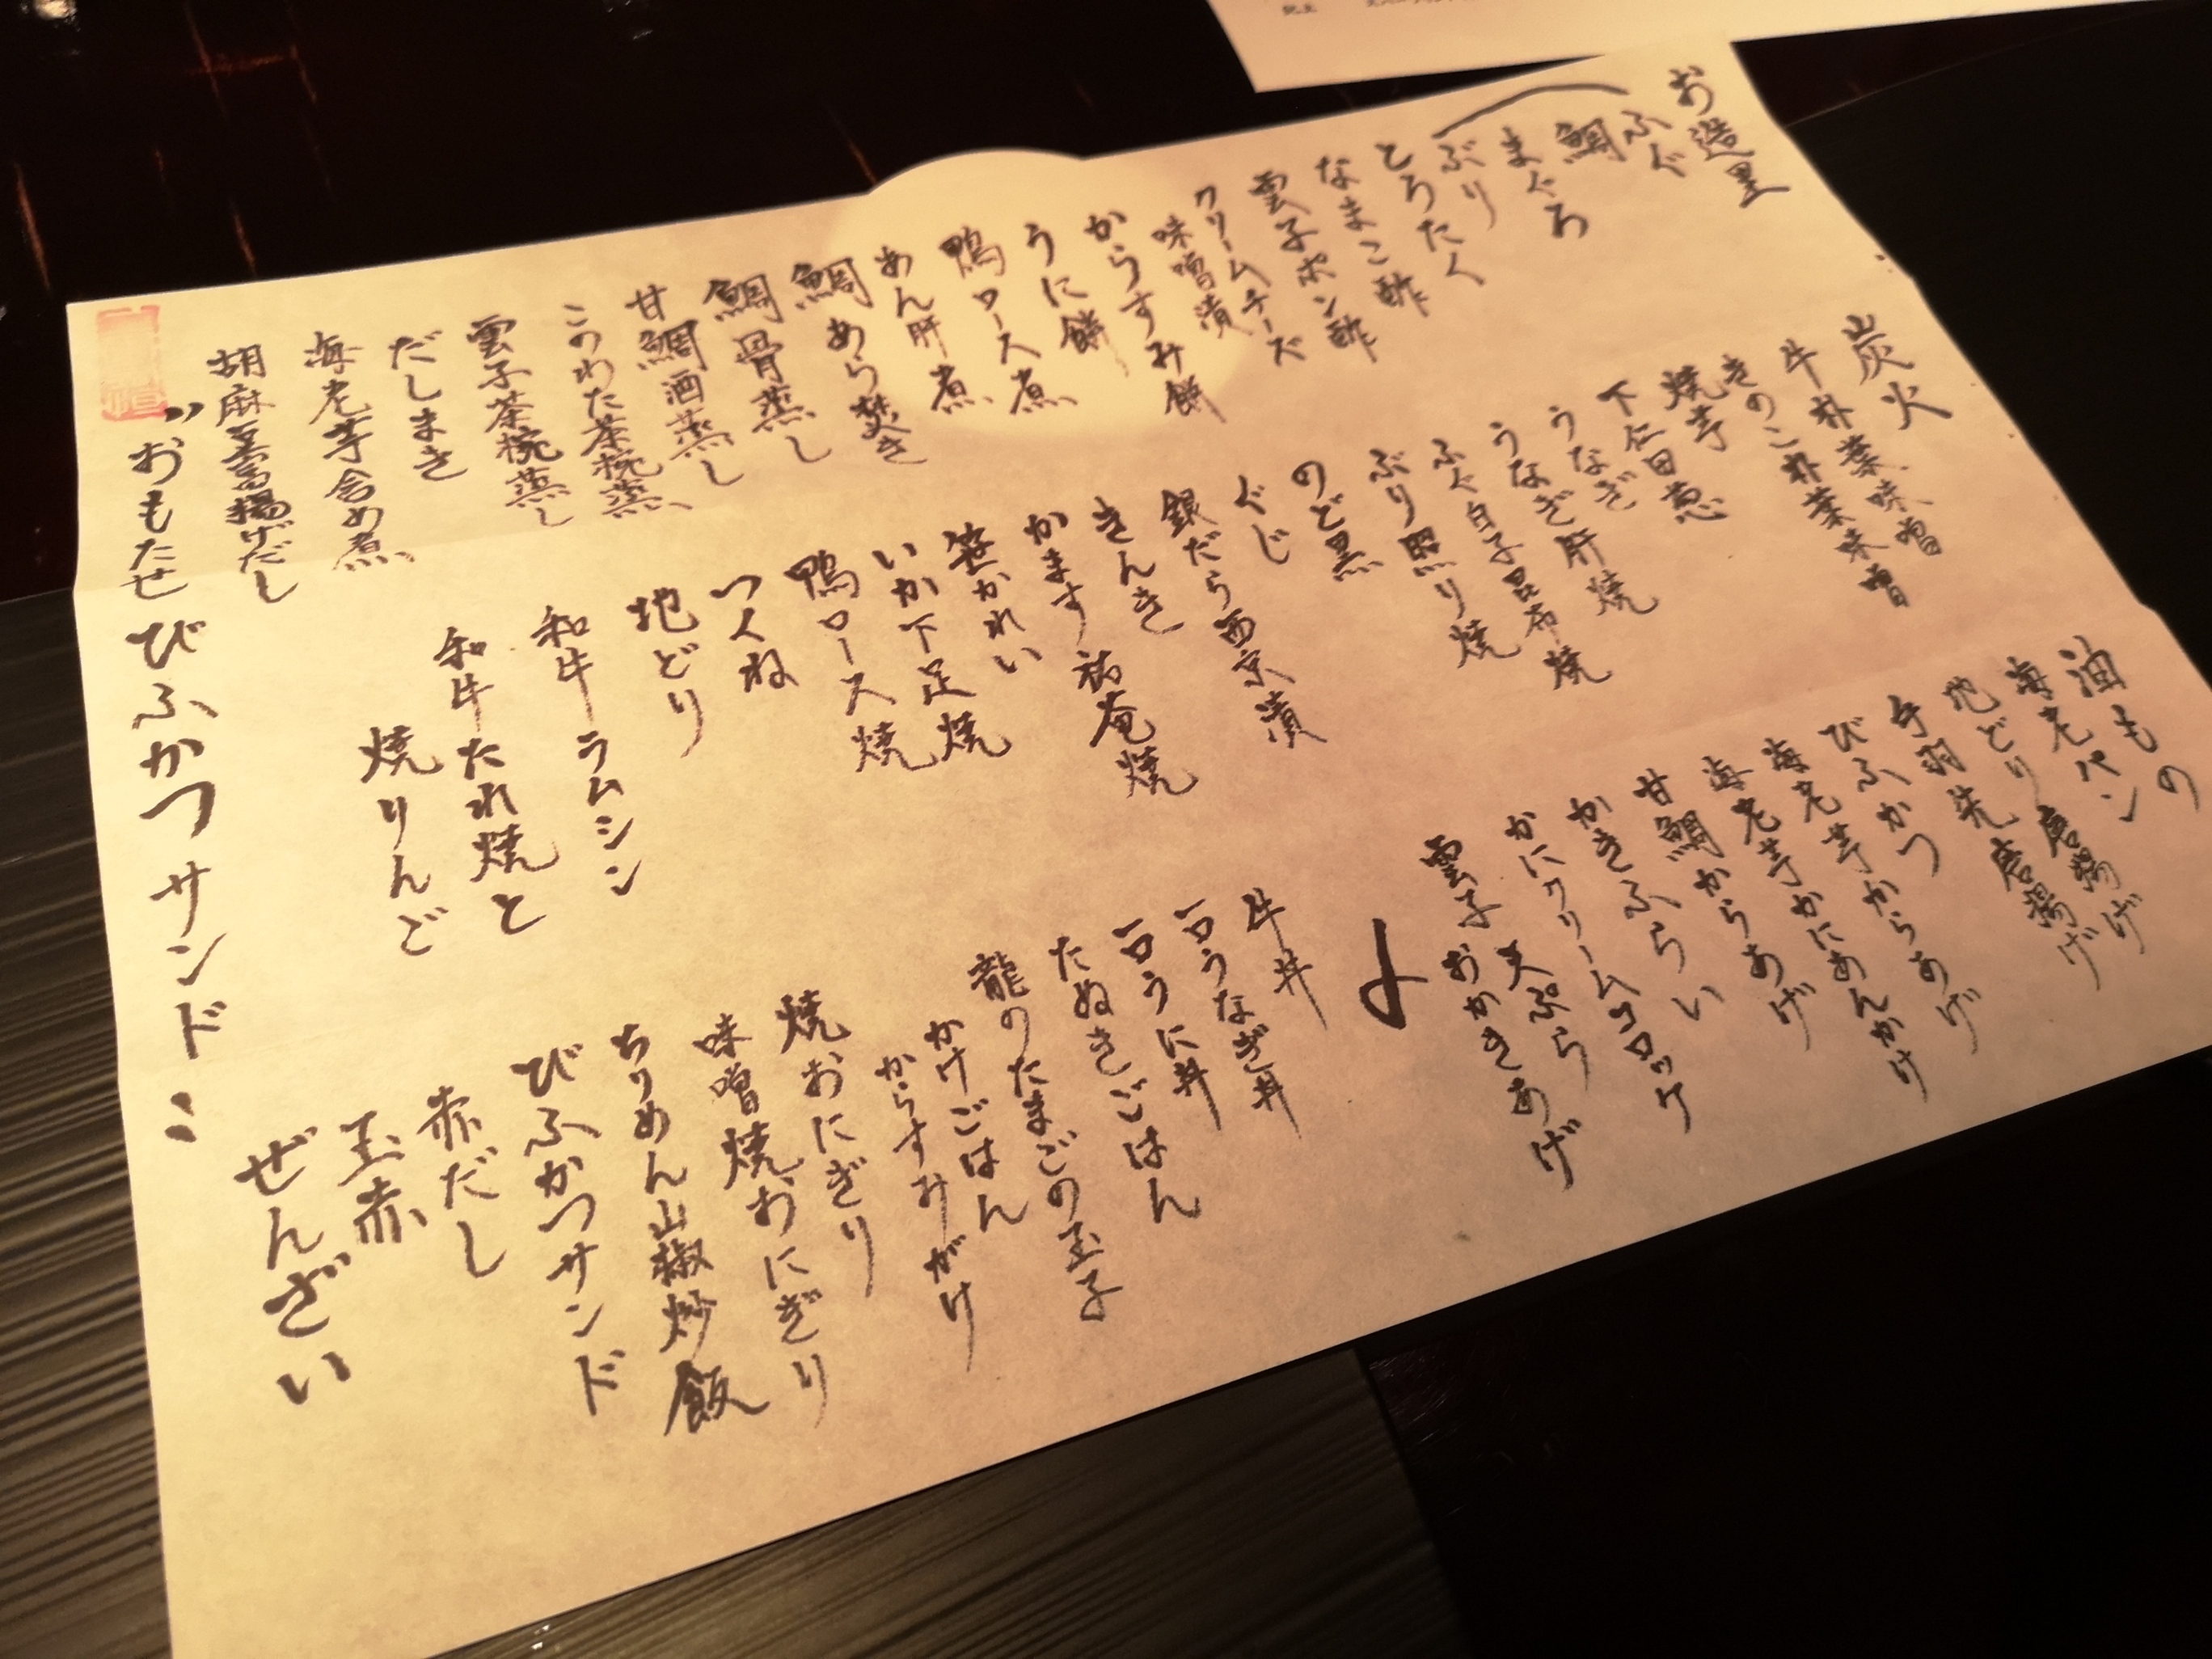 お造里
ふぐ
鯛
まぐろ
ぶり
とろたく
なまこ酢
雲子ポン酢
クリームチーズ
味噌漬
からすみ餅
うに餅
鴨ロース煮
あん肝煮
鯛あら焚き
鯛骨蒸し
甘鯛酒蒸し
このわた茶椀蒸し
雲子茶椀蒸し
だしまき
海老芋含め煮
胡麻豆富揚げだし
炭火
牛朴葉味噌
きのこ朴葉味噌
焼芋
下仁田葱
うなぎ
うなぎ肝焼
ふぐ白子昆布焼
ぶり照り焼
のど黒
ぐじ
銀だら西京漬
きんき
かます祐庵焼
笹かれい
いか下足焼
鴨ロース焼
つくね
地どり
和牛ラムシン
和牛たれ焼と
焼りんご
油もの
海老パン
地どり唐揚げ
手羽先唐揚げ
びふかつ
海老芋からあげ
海老芋かにあんかけ
甘鯛からあげ
かきふらい
かにクリームコロッケ
雲子天ぷら
おかきあげ
〆
牛丼
一口うなぎ丼
一口うに丼
たぬきごはん
龍のたまごの玉子
かけごはん
からすみがけ
焼おにぎり
味噌焼おにぎり
ちりめん山椒炒飯
びふかつサンド
赤だし
玉赤
ぜんざい
〃おもたせびふかつサンド〃